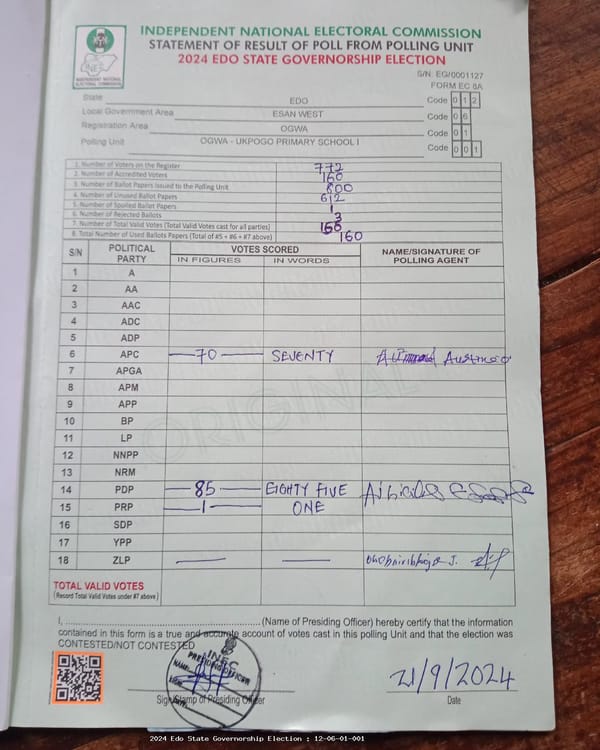 INDEPENDENT NATIONAL ELECTORAL COMMISSION
STATEMENT OF RESULT OF POLL FROM POLLING UNIT
2024 EDO STATE GOVERNORSHIP ELECTION
S/N EG/0001127
FORM EC 8A
State EDO Code 0 1 2
Local Government Area ESAN WEST Code 0 6
Registration Area OGWA Code 0 1
Polling Unit OGWA - UKPOGO PRIMARY SCHOOL I Code 0 0 1
1. Number of Voters on the Register 772
2. Number of Accredited Voters 160
3. Number of Ballot Papers Issued to the Polling Unit 800
4. Number of Unused Ballot Papers 612
5. Number of Spoiled Ballot Papers 1
6. Number of Rejected Ballots 3
7. Number of Total Valid Votes (Total Valid Votes cast for all parties)
8. Total Number of Used Ballots Papers (Total of #5 + #6 + #7 above) 160
S/N POLITICAL PARTY VOTES SCORED NAME/SIGNATURE OF POLLING AGENT
IN FIGURES IN WORDS
1 A
2 AA
3 AAC
4 ADC
5 ADP
6 APC 70 SEVENTY
7 APGA
8 APM
9 APP
10 BP
11 LP
12 NNPP
13 NRM
14 PDP 85 EIGHTY FIVE
15 PRP 1 ONE
16 SDP
17 YPP
18 ZLP
ORIGINAL
TOTAL VALID VOTES
(Record Total Valid Votes under #7 above)
I, ........................................................(Name of Presiding Officer) hereby certify that the information
contained in this form is a true and accurate account of votes cast in this polling Unit and that the election was
CONTESTED/NOT CONTESTED
INEC
PRESIDING OFFICER
NAME
21/9/2024
Sign/Stamp of Presiding Officer Date
2024 Edo State Governorship Election : 12-06-01-001